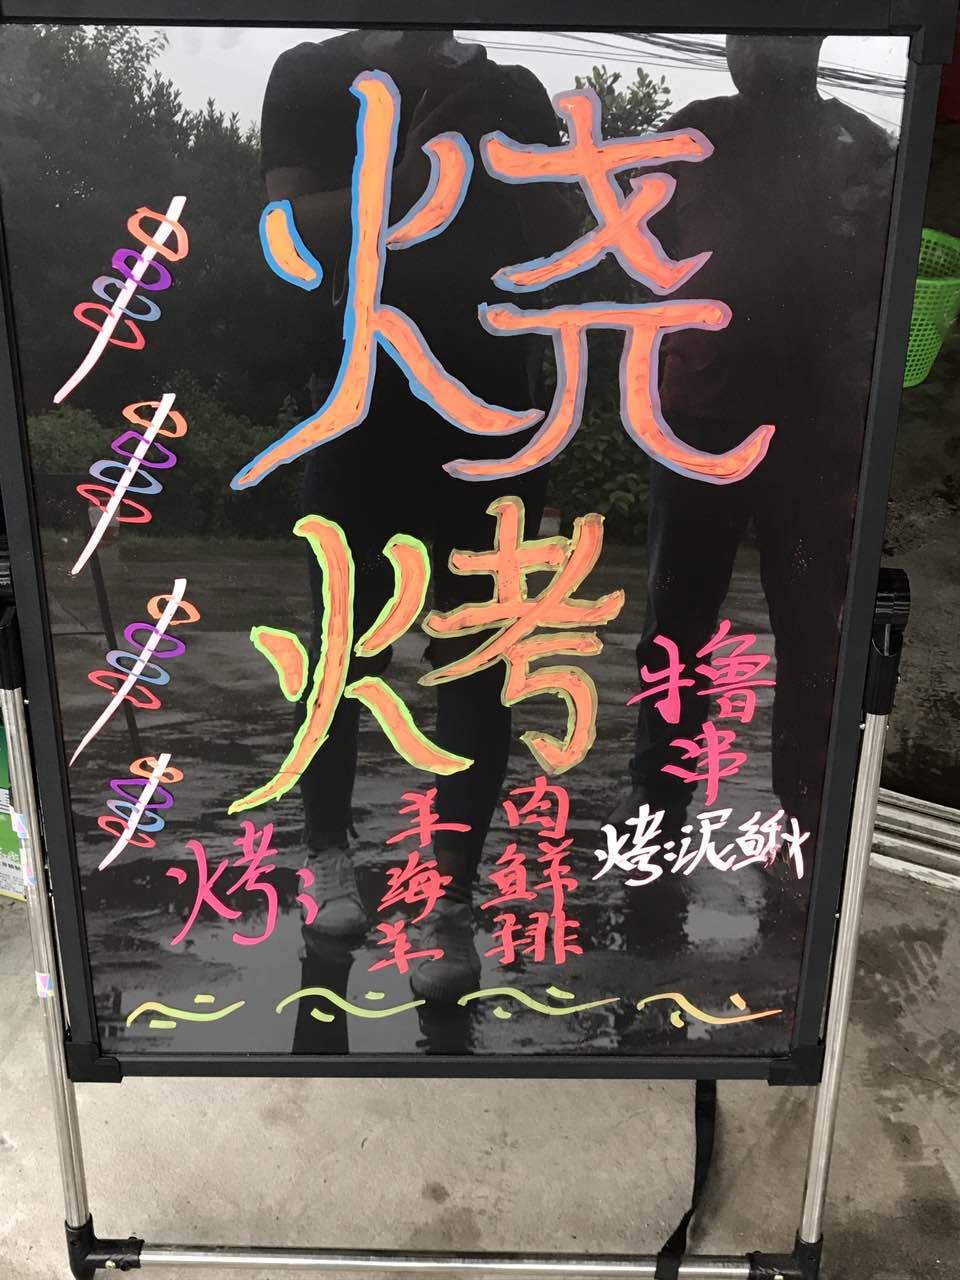 烧
烤
撸
串
烤:
羊肉
海鲜
羊排
烤:泥鳅